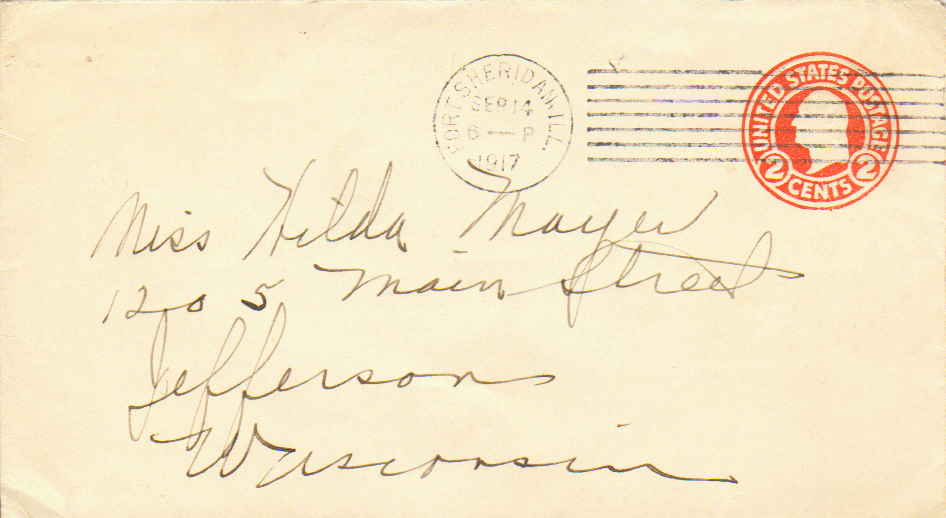 FORT SHERIDAN, ILL.
SEP 14
6 — P
1917
UNITED STATES POSTAGE
2 CENTS 2
Miss Hilda Mayer
1205 Main Street
Jefferson
Wisconsin